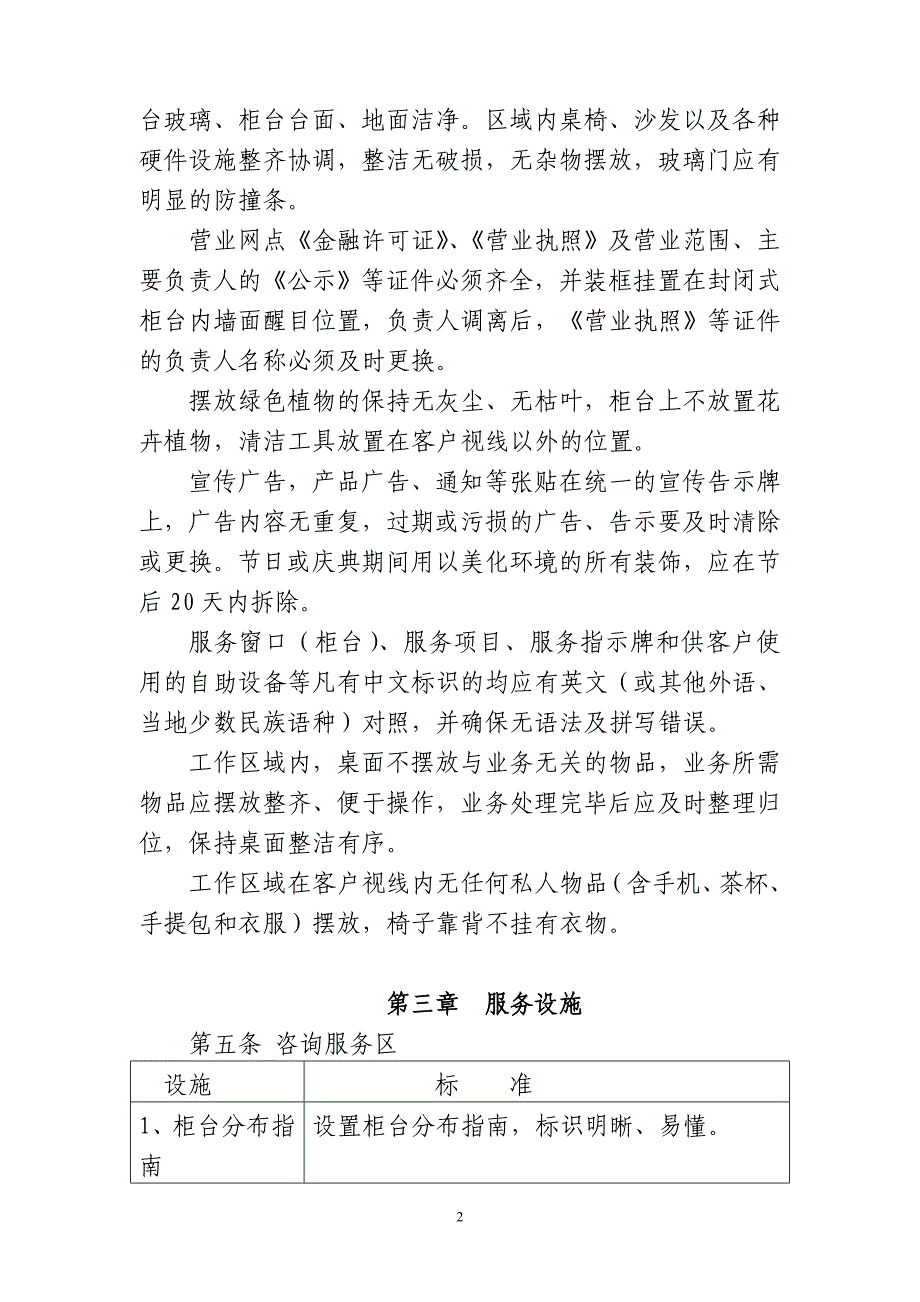 台玻璃、柜台台面、地面洁净。区域内桌椅、沙发以及各种
硬件设施整齐协调，整洁无破损，无杂物摆放，玻璃门应有
明显的防撞条。
营业网点《金融许可证》、《营业执照》及营业范围、主
要负责人的《公示》等证件必须齐全，并装框挂置在封闭式
柜台内墙面醒目位置，负责人调离后，《营业执照》等证件
的负责人名称必须及时更换。
摆放绿色植物的保持无灰尘、无枯叶，柜台上不放置花
卉植物，清洁工具放置在客户视线以外的位置。
宣传广告，产品广告、通知等张贴在统一的宣传告示牌
上，广告内容无重复，过期或污损的广告、告示要及时清除
或更换。节日或庆典期间用以美化环境的所有装饰，应在节
后20天内拆除。
服务窗口（柜台）、服务项目、服务指示牌和供客户使
用的自助设备等凡有中文标识的均应有英文（或其他外语、
当地少数民族语种）对照，并确保无语法及拼写错误。
工作区域内，桌面不摆放与业务无关的物品，业务所需
物品应摆放整齐、便于操作，业务处理完毕后应及时整理归
位，保持桌面整洁有序。
工作区域在客户视线内无任何私人物品（含手机、茶杯、
手提包和衣服）摆放，椅子靠背不挂有衣物。
第三章 服务设施
第五条 咨询服务区
设施 标 准
1、柜台分布指 设置柜台分布指南，标识明晰、易懂。
南
2